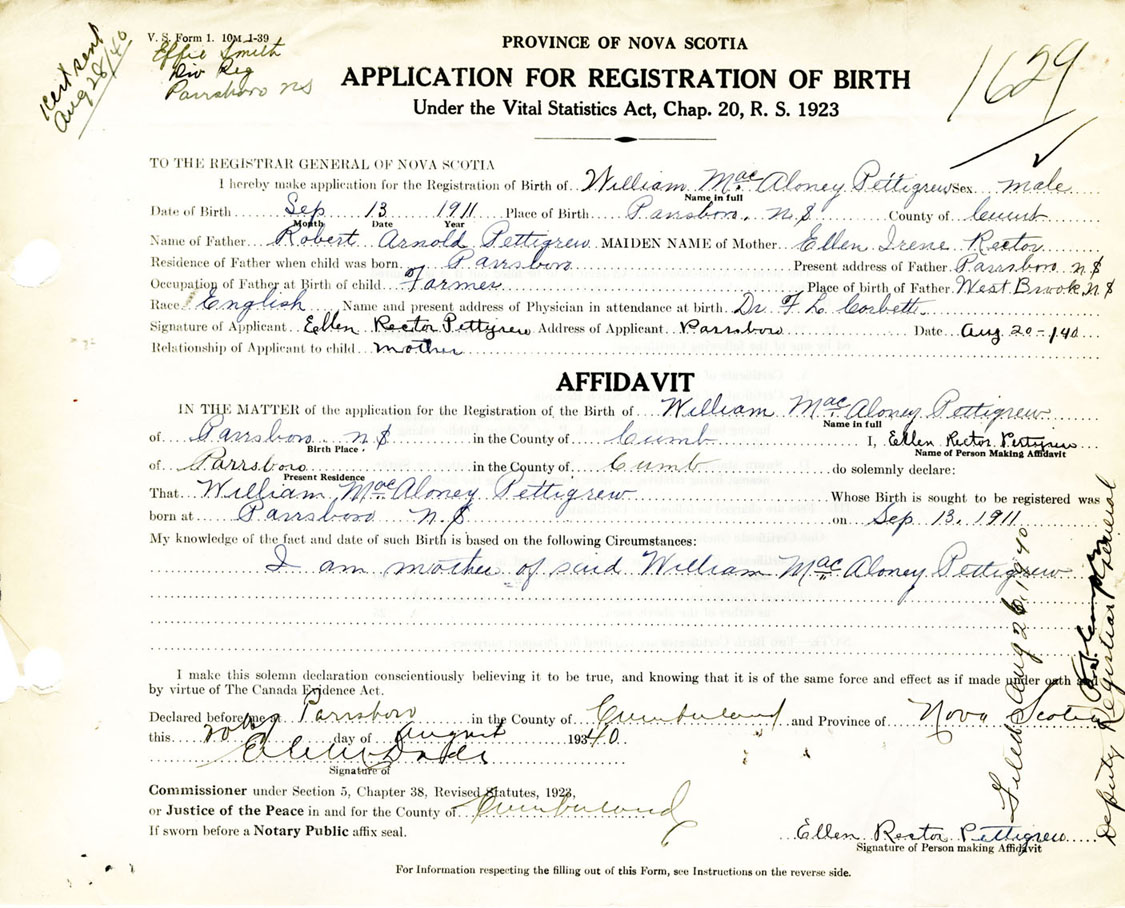 V. S. Form 1. 10M 1-39
Effie Smith
Div Reg
Parrsboro NS
Cert sent
Aug 28/40
PROVINCE OF NOVA SCOTIA
APPLICATION FOR REGISTRATION OF BIRTH
Under the Vital Statistics Act, Chap. 20, R. S. 1923
1629
TO THE REGISTRAR GENERAL OF NOVA SCOTIA
I hereby make application for the Registration of Birth of William Mac Aloney Pettigrew Sex male
Name in full
Date of Birth Sep 13 1911 Place of Birth Parrsboro, N.S County of Cumb
Month Date Year
Name of Father Robert Arnold Pettigrew MAIDEN NAME of Mother Ellen Irene Rector
Residence of Father when child was born Parrsboro Present address of Father Parrsboro N.S
Occupation of Father at Birth of child Farmer Place of birth of Father West Brook, N.S
Race English Name and present address of Physician in attendance at birth Dr. F. L. Corbett
Signature of Applicant Ellen Rector Pettigrew Address of Applicant Parrsboro Date Aug. 20-1940
Relationship of Applicant to child mother
AFFIDAVIT
IN THE MATTER of the application for the Registration of the Birth of William Mac Aloney Pettigrew
Name in full
of Parrsboro N.S in the County of Cumb I, Ellen Rector Pettigrew
Birth Place. Name of Person Making Affidavit
of Parrsboro in the County of Cumb do solemnly declare:
Present Residence
That William Mac Aloney Pettigrew Whose Birth is sought to be registered was
born at Parrsboro N.S on Sep 13, 1911
My knowledge of the fact and date of such Birth is based on the following Circumstances:
I am mother of said William Mac Aloney Pettigrew
I make this solemn declaration conscientiously believing it to be true, and knowing that it is of the same force and effect as if made under oath and
by virtue of The Canada Evidence Act.
Declared before me at Parrsboro in the County of Cumberland and Province of Nova Scotia
this 20th day of August 19340
Signature of
Commissioner under Section 5, Chapter 38, Revised Statutes, 1923,
or Justice of the Peace in and for the County of Cumberland
If sworn before a Notary Public affix seal.
Ellen Rector Pettigrew
Signature of Person making Affidavit
For Information respecting the filling out of this Form, see Instructions on the reverse side.
Filed Aug 26, 1940
Deputy Registrar General